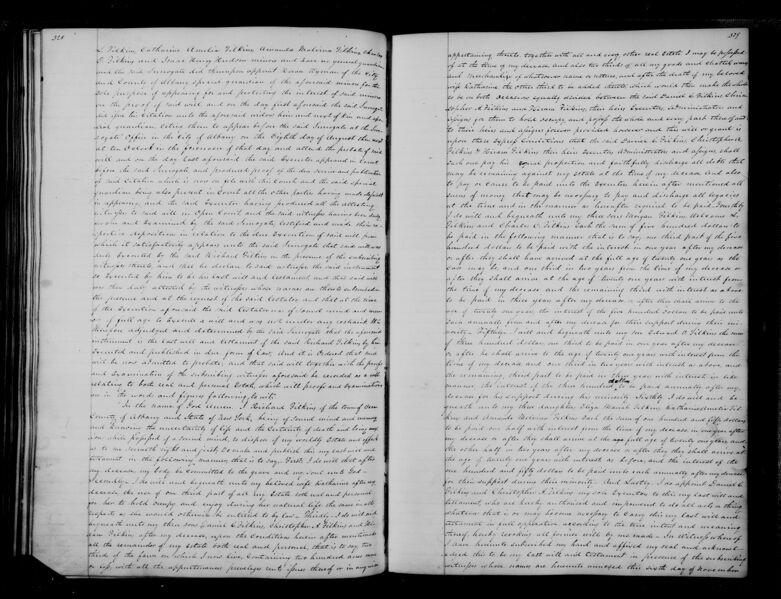 328
L. Filkins, Catharine Amelia Filkins, Amanda Malvina Filkins, Charles
D. Filkins and Isaac Henry Hudson minors and have no general guardian
and the said Surrogate did thereupon appoint Isaac of the City
and County of Albany special guardian of the aforesaid minors for the
sole purpose of appearing for and protecting the interest of said minors
on the proof of said will and on the day first aforesaid the said Surrogate
did issue his Citation unto the aforesaid widow heirs and next of kin and
special guardian citing them to appear before the said Surrogate at the Sur-
rogate's Office in the City of Albany on the Eighth day of August then next
at ten O'clock in the forenoon of that day and attend the probate of said
will and on the day last aforesaid the said Executor appeared in Court
before the said Surrogate and produced proof of the due service and publication
of said Citation which is now on file with this Court and the said special
guardian being also present in Court all the other parties having made default
in appearing, and the said Executor having produced all the attesting
witnesses to said will in Open Court and the said witnesses having been duly
sworn and Examined by the said Surrogate, testified and made their re-
spective depositions in relation to the due Execution of said will, from
which it satisfactorily appears unto the said Surrogate that said will was
duly Executed by the said Richard Filkins in the presence of the subscribing
witnesses thereto, and that he declared to said witnesses the said instrument
so Executed by him to be his last will and testament and that said will
was then duly attested by the witnesses whose names are thereto subscribed
in the presence and at the request of the said testator and that at the time
of the Execution aforesaid the said testator was of sound mind and memory
and of full age to Execute a will and was not under any restraint. It is
therefore adjudged and determined by the said Surrogate that the aforesaid
instrument is the last will and testament of the said Richard Filkins by him
Executed and published in due form of law, And it is Ordered that said
will be and admitted to probate, and that said will together with the proofs
and Examination of the subscribing witnesses aforesaid be recorded as a will
relating to both real and personal Estate, which will proofs and Examinations
are in the words and figures following, to wit:
"In the name of God Amen. I Richard Filkins of the town of
County of Albany and State of New York, being of sound mind and memory
and knowing the uncertainty of life and the Certainty of death and being
now while possessed of a sound mind, to dispose of my worldly Estate and effects
as to me seemeth right and just, do make and publish this my last will and
testament in the following manner, that is to say, First, I do will that after
my decease, my body be committed to the grave and my soul unto God.
Secondly. I do will and bequeath unto my beloved wife Katharine after my
decease the use of one third part of all my Estate both real and personal
for her to hold occupy and enjoy during her natural life the same in all
respects as she would otherwise be entitled to by law. Thirdly. I do will and
bequeath unto my three sons Daniel C. Filkins, Christopher A. Filkins and Hi-
ram Filkins after my decease, upon the conditions herein after mentioned
all the remainder of my estate both real and personal, that is to say two
thirds of the farm on which I now live, Containing two hundred acres more
or less, with all the appurtenances privileges unto same thereof or in any wise
329
appertaining thereto, together with all and every other real Estate I may be possessed
of at the time of my decease. And also two thirds of all my goods and chattels wares
and Merchandize of whatsoever name or nature, and after the death of my beloved
wife Katharine the other third to be added thereto, which would then make the whole
to be on both Occasions equally divided between the said Daniel C. Filkins Chris-
topher A. Filkins and Hiram Filkins, their heirs Executors, Administrators and
assigns for them to hold occupy and possess the whole and every part thereof and
to their heirs and assigns forever provided however and this will or grant is
upon these Express Conditions that the said Daniel C. Filkins Christopher A.
Filkins & Hiram Filkins their heirs Executors, Administrators and assigns shall
each one pay his equal proportion and faithfully discharge all debts that
may be remaining against my Estate at the time of my decease. And also
to pay or cause to be paid unto the Executors herein after mentioned all
sums of money that may be necessary to pay and discharge all legacies
at the time and in the manner as hereafter required to be paid. Fourthly
I do will and bequeath unto my three sons Morgan Filkins Welcome L.
Filkins and Charles D. Filkins Each the sum of five hundred dollars to
be paid in the following manner that is to say, one third part of the five
hundred dollars to be paid with the interest in one year after my decease
or after they shall have arrived at the full age of twenty one years as the
case may be and one third in two years from the time of my decease or
after they shall arrive at the age of twenty one years with interest from
the time of my decease and the remaining third with interest as above
to be paid in three years after my decease or after they shall arrive to the
age of twenty one years, the interest of the five hundred Dollars to be paid unto
each annually from and after my decease for their support during their mi-
nority. Fifthly. I will and bequeath unto my son Edward P. Filkins the sum
of three hundred dollars, one third to be paid in one year after my decease
or after he shall arrive to the age of twenty one years with interest from the
time of my decease and one third in two years with interest as above, and
the remaining third part to be paid in three years with interest in like
manner, the interest of the three hundred dollars to be paid annually after my
decease for his support during his minority. Sixthly I do will and be-
queath unto my three daughters Eliza Filkins, Katharine Amelia Fil-
kins and Amanda Malvina Filkins Each the sum of one hundred and fifty dollars
to be paid one half with interest from the time of my decease in one year after
my decease or after they shall arrive at the full age of twenty one years and
the other half in two years after my decease or after they shall arrive at
the age of twenty one years with interest as before, and the interest of the
one hundred and fifty dollars to be paid unto each annually after my decease
for their support during their minority. And Lastly. I do appoint Daniel C.
Filkins and Christopher A. Filkins my sole Executors to this my last will and
testament, who are hereby authorized and required to do all acts or things
whatsoever that is or may become necessary to carry this my last will and
testament in full operation according to the true intent and meaning
thereof hereby revoking all former wills by me made. In Witness whereof
I have hereunto subscribed my hand and affixed my seal and acknowl-
edged this to be my last will and testament in presence of the subscribing
witnesses whose names are hereunto annexed this sixth day of November